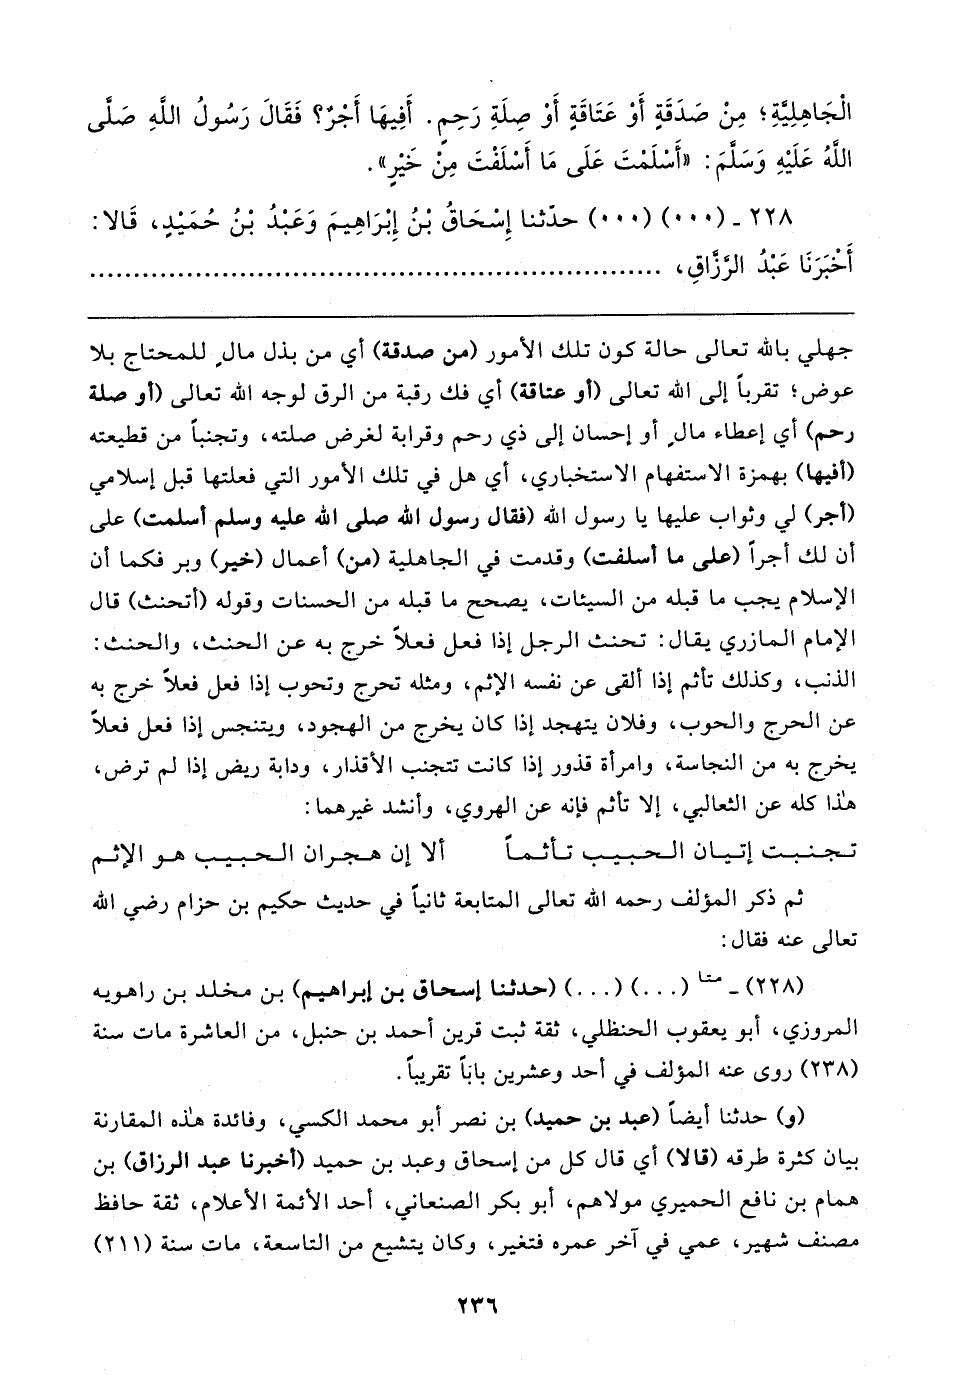 الْجَاهِلِيَّةِ؛ مِنْ صَدَقَةٍ أَوْ عَتَاقَةٍ أَوْ صِلَةِ رَحِمٍ. أَفِيهَا أَجْرٌ؟ فَقَالَ رَسُولُ اللَّهِ صَلَّى
اللَّهُ عَلَيْهِ وَسَلَّمَ: «أَسْلَمْتَ عَلَى مَا أَسْلَفْتَ مِنْ خَيْرٍ».
٢٢٨ ـ (٠٠٠) (٠٠٠) حدّثنا إِسْحَاقُ بْنُ إِبْرَاهِيمَ وَعَبْدُ بْنُ حُمَيْدٍ، قَالا:
أَخْبَرَنَا عَبْدُ الرَّزَّاقِ، ................................................................
جهلي بالله تعالى حالة كون تلك الأمور (من صدقة) أي من بذل مالٍ للمحتاج بلا
عوض؛ تقرباً إلى الله تعالى (أو عتاقة) أي فك رقبة من الرق لوجه الله تعالى (أو صلة
رحم) أي إعطاء مالٍ أو إحسان إلى ذي رحم وقرابة لغرض صلته، وتجنباً من قطيعته
(أفيها) بهمزة الاستفهام الاستخباري، أي هل في تلك الأمور التي فعلتها قبل إسلامي
(أجر) لي وثواب عليها يا رسول الله (فقال رسول الله صلى الله عليه وسلم أسلمت) على
أن لك أجراً (على ما أسلفت) وقدمت في الجاهلية (من) أعمال (خير) وبر فكما أن
الإسلام يجب ما قبله من السيئات، يصحح ما قبله من الحسنات وقوله (أتحنث) قال
الإمام المازري يقال: تحنث الرجل إذا فعل فعلاً خرج به عن الحنث، والحنث:
الذنب، وكذلك تأثم إذا ألقى عن نفسه الإثم، ومثله تحرج وتحوب إذا فعل فعلاً خرج به
عن الحرج والحوب، وفلان يتهجد إذا كان يخرج من الهجود، ويتنجس إذا فعل فعلاً
يخرج به من النجاسة، وامرأة قذور إذا كانت تتجنب الأقذار، ودابة ريض إذا لم ترض،
هذا كله عن الثعالبي، إلا تأثم فإنه عن الهروي، وأنشد غيرهما:
تجنبت إتيان الحبيب تأثماً ألا إن هجران الحبيب هو الإثم
ثم ذكر المؤلف رحمه الله تعالى المتابعة ثانياً في حديث حكيم بن حزام رضي الله
تعالى عنه فقال:
(٢٢٨) ـ متا (...) (...) (حدثنا إسحاق بن إبراهيم) بن مخلد بن راهويه
المروزي، أبو يعقوب الحنظلي، ثقة ثبت قرين أحمد بن حنبل، من العاشرة مات سنة
(٢٣٨) روى عنه المؤلف في أحد وعشرين باباً تقريباً.
(و) حدثنا أيضاً (عبد بن حميد) بن نصر أبو محمد الكسي، وفائدة هذه المقارنة
بيان كثرة طرقه (قالا) أي قال كل من إسحاق وعبد بن حميد (أخبرنا عبد الرزاق) بن
همام بن نافع الحميري مولاهم، أبو بكر الصنعاني، أحد الأئمة الأعلام، ثقة حافظ
مصنف شهير، عمي في آخر عمره فتغير، وكان يتشيع من التاسعة، مات سنة (٢١١)
٢٣٦